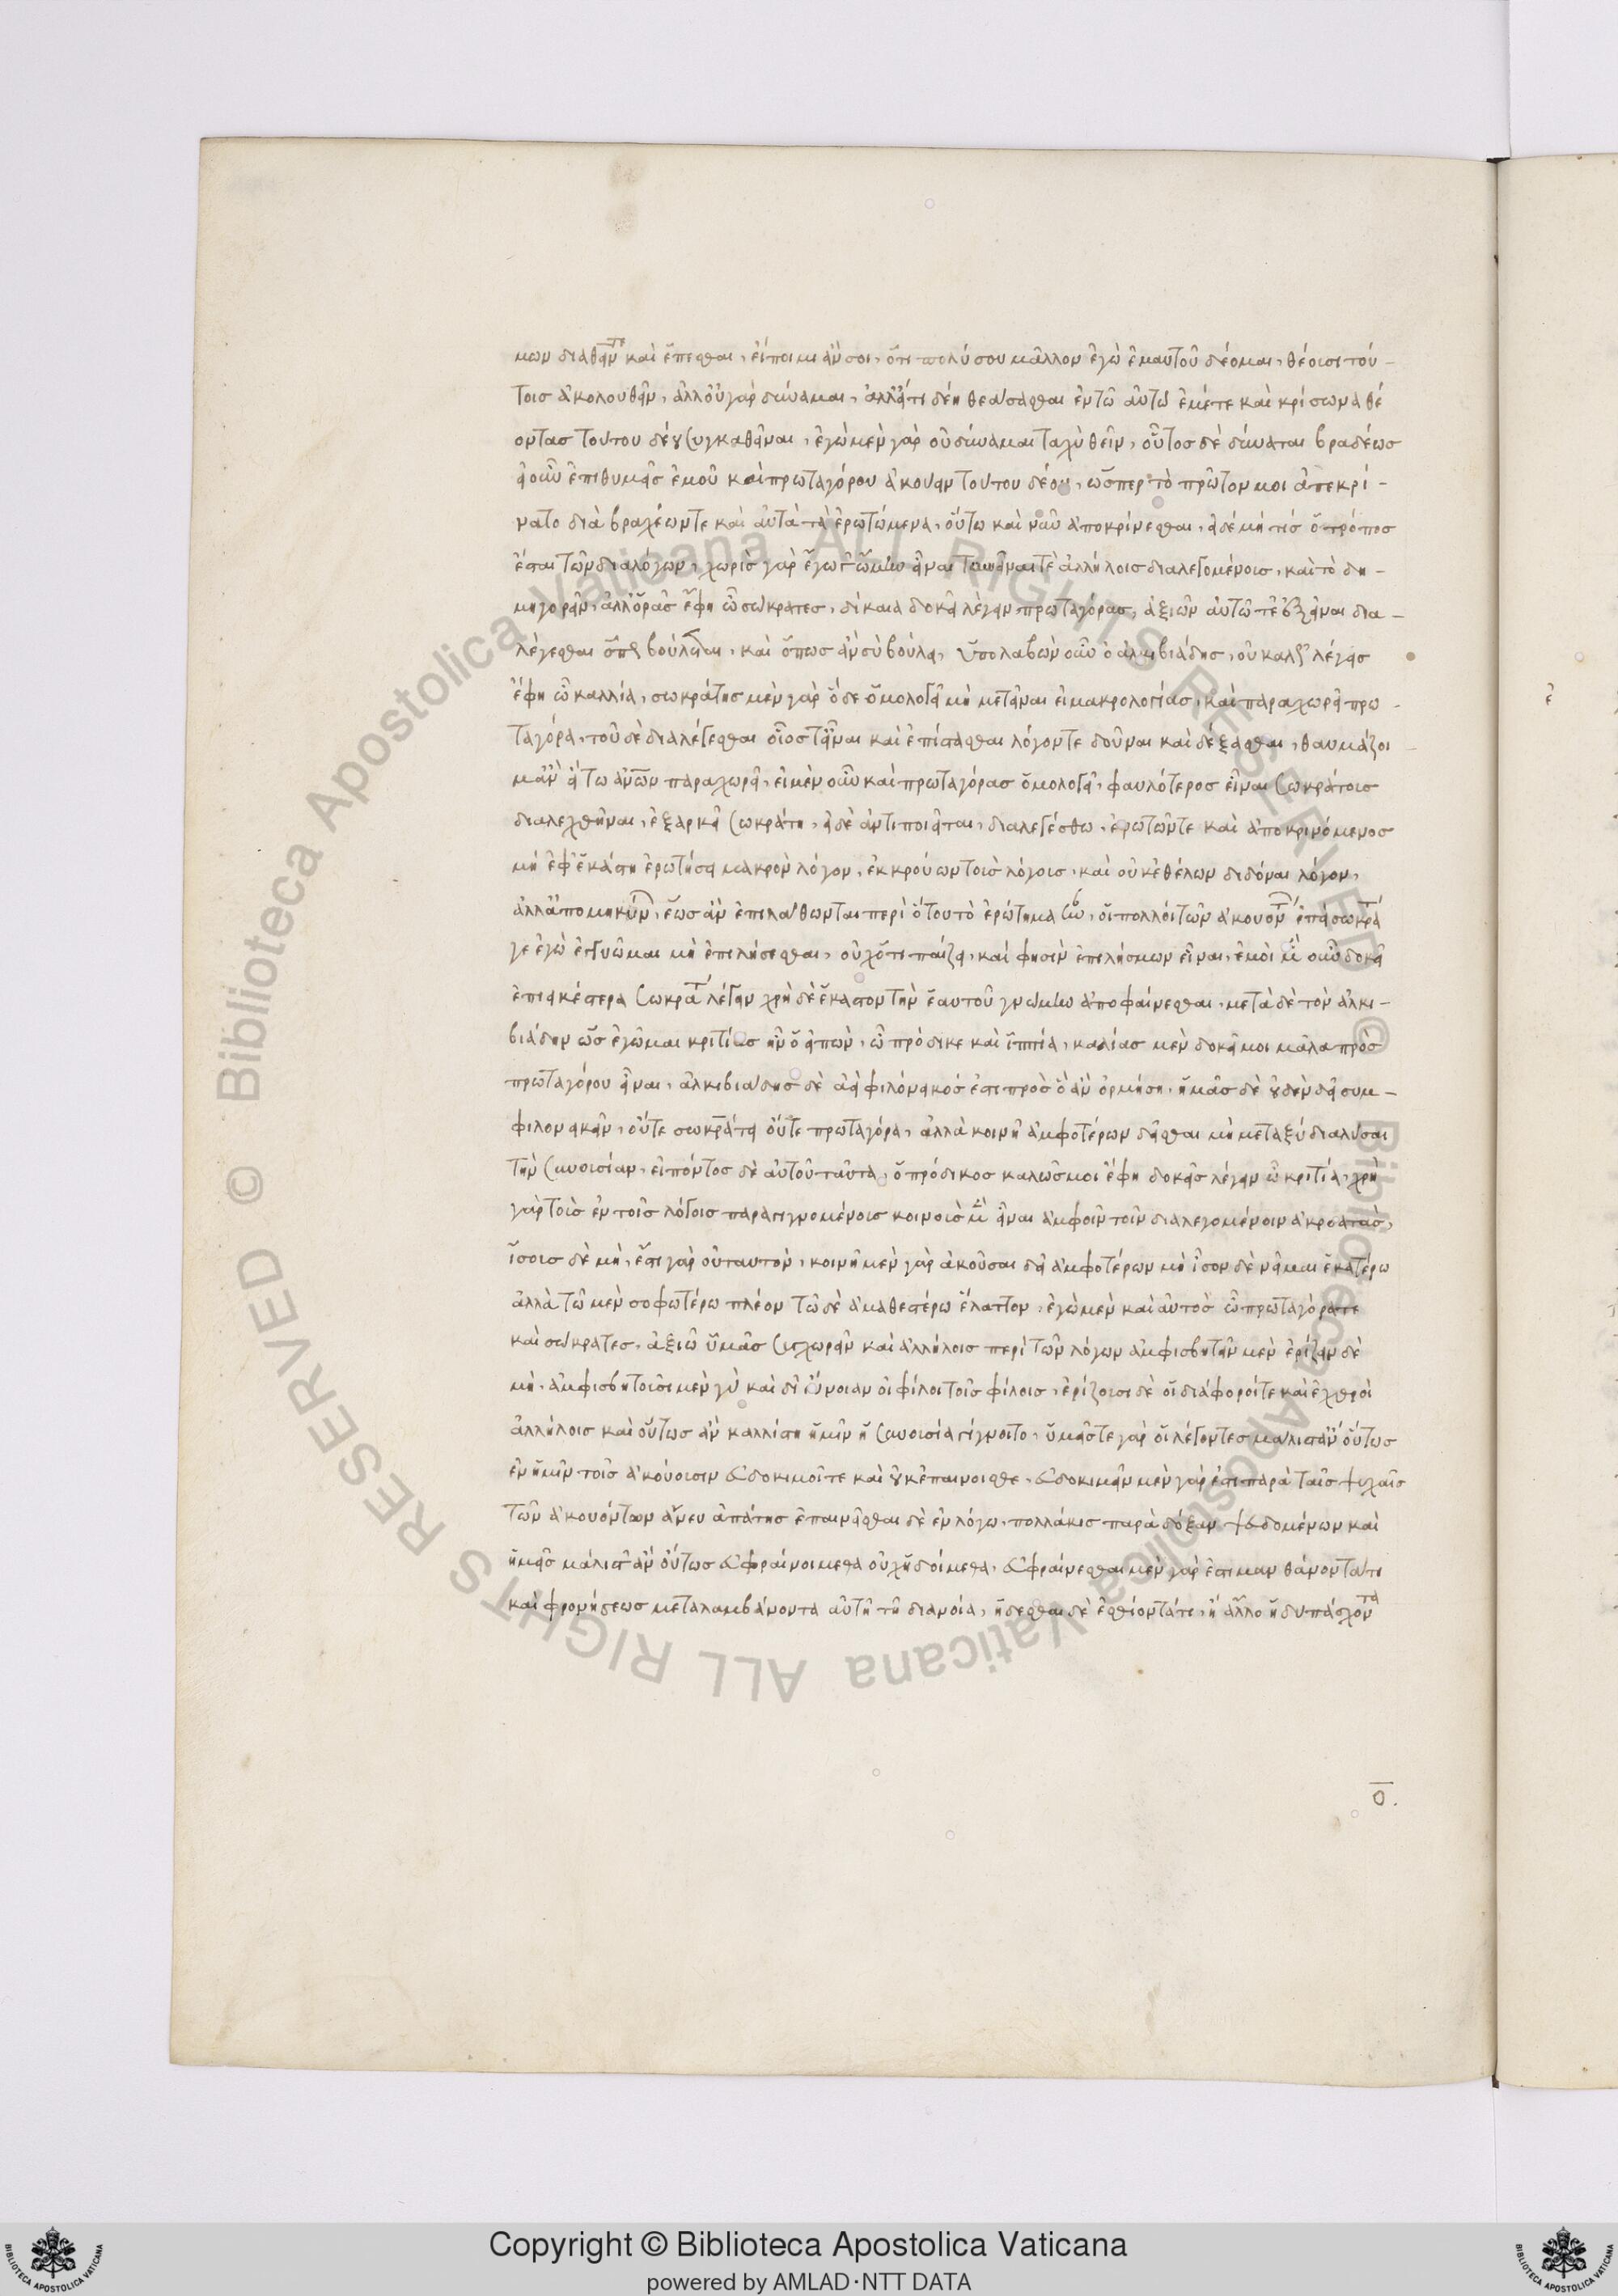 μων διαθεῖν τε καὶ ἕπεσθαι, εἴποιμι ἄν σοι, ὅτι πολύ σου μᾶλλον ἐγὼ ἐμαυτοῦ δέομαι, θέουσι τού-
τοις ἀκολουθεῖν, ἀλλ' οὐ γὰρ δύναμαι, ἀλλ' εἴ τι δέῃ θεάσασθαι ἐν τῶ αὐτῶ ἐμέ τε καὶ κρίσωνα θέ
οντας τούτου δέου συγκαθεῖναι, ἐγὼ μὲν γὰρ οὐ δύναμαι ταχὺ θεῖν, οὗτος δὲ δύναται βραδέως
εἰ οὖν ἐπιθυμεῖς ἐμοῦ καὶ πρωταγόρου ἀκούειν τούτου δέου, ὥσπερ τὸ πρῶτον μοι ἀπεκρί-
νατο διὰ βραχέων τε καὶ αὐτὰ τὰ ἐρωτώμενα, οὕτω καὶ νῦν ἀποκρίνεσθαι, εἰ δὲ μή τίς ὁ τρόπος
ἔσται τῶν διαλόγων, χωρὶς γὰρ ἔγωγ' ὤμην εἶναι τὸ συνεῖναι τὲ ἀλλήλοις διαλεγομένοις, καὶ τὸ δη-
μηγορεῖν, ἀλλ' ὁρᾶς ἔφη ὦ σώκρατες, δίκαια δοκεῖ λέγειν πρωταγόρας, ἀξιῶν αὐτῶ τὲ ἐξεῖναι δια-
λέγεσθαι ὅπως βούλεται, καὶ ὅπως ἂν σὺ βούλει, ὑπολαβὼν οὖν ὁ ἀλκιβιάδης, οὐ καλῶς λέγεις
ἔφη ὦ καλλία, σωκράτης μὲν γὰρ ὅδε ὁμολογεῖ μὴ μετεῖναι εἱ μακρολογίας, καὶ παραχωρεῖ πρω-
ταγόρα, τοῦ δὲ διαλέγεσθαι οἷος τ' εἶναι καὶ ἐπίστασθαι λόγον τε δοῦναι καὶ δέξασθαι, θαυμάζοι-
μ' ἂν εἴ τω ἀνθρώπων παραχωρεῖ, εἰ μὲν οὖν καὶ πρωταγόρας ὁμολογεῖ, φαυλότερος εἶναι σωκράτους
διαλεχθῆναι, ἐξαρκεῖ σωκράτη, εἰ δὲ ἀντιποιεῖται, διαλεγέσθω, ἐρωτῶν τε καὶ ἀποκρινόμενος
μὴ ἐφ' ἑκάστη ἐρωτήσει μακρὸν λόγον, ἐκκρούων τοὺς λόγους, καὶ οὐκ ἐθέλων διδόναι λόγον,
ἀλλ' ἀπομηκύνων, ἕως ἂν ἐπιλάθωνται περὶ ὅτου τὸ ἐρώτημα ἦν, οἱ πολλοὶ τῶν ἀκουόντων, ἐπεὶ σωκράτη
γε ἐγὼ ἐγγυῶμαι μὴ ἐπιλήσεσθαι, οὐχ ὅτι παίζει, καί φησιν ἐπιλήσμων εἶναι, ἐμοὶ μὲν οὖν δοκεῖ
ἐπιεικέστερα σωκράτης λέγειν χρὴ δὲ ἕκαστον τὴν ἑαυτοῦ γνώμην ἀποφαίνεσθαι, μετὰ δὲ τὸν ἀλκι-
βιάδην ὡς ἐγῶμαι κριτίας ἦν ὁ εἰπών, ὦ πρόδικε καὶ ἱππία, καλίας μὲν δοκεῖ μοι μᾶλα πρὸς
πρωταγόρου εἶναι, ἀλκιβιάδης δὲ ἀεὶ φιλόνεικός ἐστι πρὸς ὃ ἂν ὁρμήση, ἡμᾶς δὲ οὐδὲν δεῖ συμ-
φιλονεικεῖν, οὔτε σωκράτει οὔτε πρωταγόρα, ἀλλὰ κοινῆ ἀμφοτέρων δεῖσθαι μὴ μεταξὺ διαλῦσαι
τὴν συνουσίαν, εἰπόντος δὲ αὐτοῦ ταῦτα, ὁ πρόδικος καλῶς μοι ἔφη δοκεῖς λέγειν ὦ κριτία, χρὴ
γὰρ τοὺς ἐν τοῖς λόγοις παραγιγνομένους κοινοὺς μὲν εἶναι ἀμφοῖν τοῖν διαλεγομένοιν ἀκροατὰς,
ἴσους δὲ μὴ, ἔστι γὰρ οὐ ταυτόν, κοινῆ μὲν γὰρ ἀκοῦσαι δεῖ ἀμφοτέρων μὴ ἴσον δὲ νεῖμαι ἑκατέρω
ἀλλὰ τῶ μὲν σοφωτέρω πλέον τῶ δὲ ἀμαθεστέρω ἔλαττον, ἐγὼ μὲν καὶ αὐτὸς ὦ πρωταγόρα τε
καὶ σώκρατες, ἀξιῶ ὑμᾶς συγχωρεῖν καὶ ἀλλήλοις περὶ τῶν λόγων ἀμφισβητεῖν μὲν ἐρίζειν δὲ
μὴ, ἀμφισβητοῦσι μὲν γὰρ καὶ δι' εὔνοιαν οἱ φίλοι τοῖς φίλοις, ἐρίζουσι δὲ οἱ διάφοροί τε καὶ ἐχθροὶ
ἀλλήλοις καὶ οὕτως ἂν καλλίστη ἡμῖν ἡ συνουσία γίγνοιτο, ὑμεῖς τε γὰρ οἱ λέγοντες μάλιστ' ἂν οὕτως
ἐν ἡμῖν τοῖς ἀκούουσιν εὐδοκιμοῖτε καὶ οὐκ ἐπαινοῖσθε, εὐδοκιμεῖν μὲν γάρ ἐστι παρὰ ταῖς ψυχαῖς
τῶν ἀκουόντων ἄνευ ἀπάτης ἐπαινεῖσθαι δὲ ἐν λόγω, πολλάκις παρὰ δόξαν ψευδομένων καὶ
ἡμεῖς μάλιστ' ἂν οὕτως εὐφραίνοιμεθα οὐχ ἡδοίμεθα, εὐφραίνεσθαι μὲν γάρ ἐστι μανθάνοντά τι
καὶ φρονήσεως μεταλαμβάνοντα αὐτῆ τῆ διανοία, ἥδεσθαι δὲ ἐσθίοντά τι, ἢ ἄλλο ἡδὺ πάσχοντα
ο.